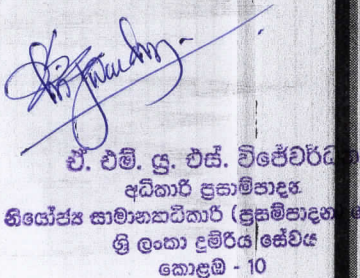 ඒ. එම්. යු. එස්. විජේවර්ධන
අධිකාරි ප්‍රසාම්පාදන
නියෝජ්‍ය සාමාන්‍යාධිකාරි (ප්‍රසම්පාදන)
ශ්‍රි ලංකා දුම්රිය සේවය
කොළඹ - 10